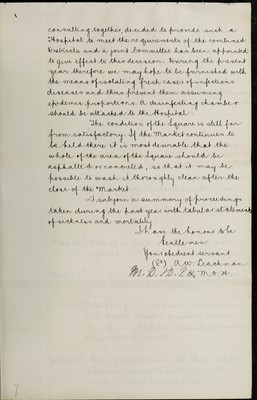 consulting together, decided to provide such a
Hospital to meet the requirements of the combined
Districts and a joint Committee has been appointed
to give effect to this decision. During the present
year therefore we may hope to be furnished with
the means of isolating fresh cases of infectious
diseases and thus prevent them assuming
epidemic proportions. A disinfecting chamber
should be attached to the Hospital.
The condition of the Square is still far
from satisfactory. If the Market continues to
be held there it is most desirable that the
whole of the area of the Square should be
asphalted or concreted, so that it may be
possible to wash it thoroughly clean after the
close of the Market
I subjoin a summary of proceedings
taken during the past year with tabular statements
of sickness and mortality
I have the honour to be
Gentlemen
Your obedient servant
(Sd) A W Leachman
M.D. D.P.H. M.O.H.
7